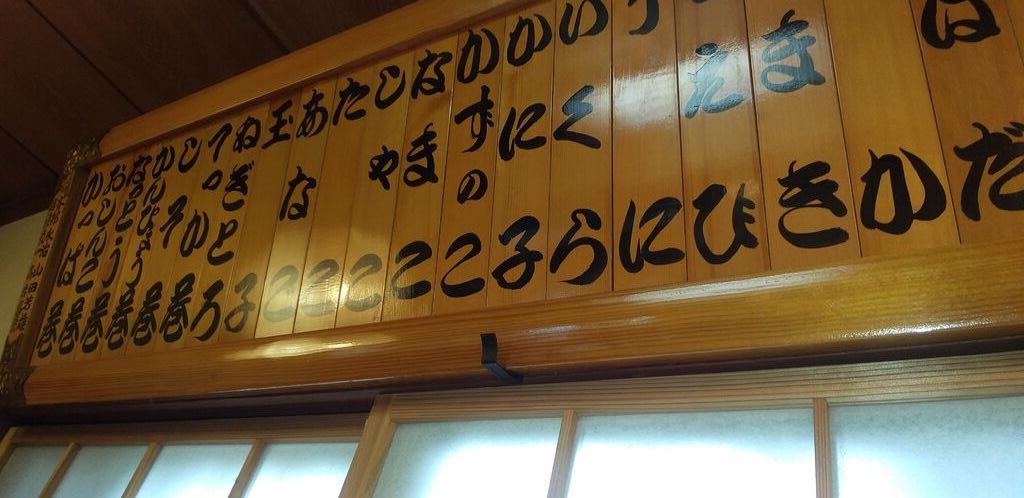 はだ
か
まき
えび
うに
いくら
かに子
かずのこ
なまこ
しやこ
たこ
あなこ
玉子
ねぎとろ
てっか巻
しそ巻
かんぴょう巻
なっとう巻
おしんこ巻
かっぱ巻